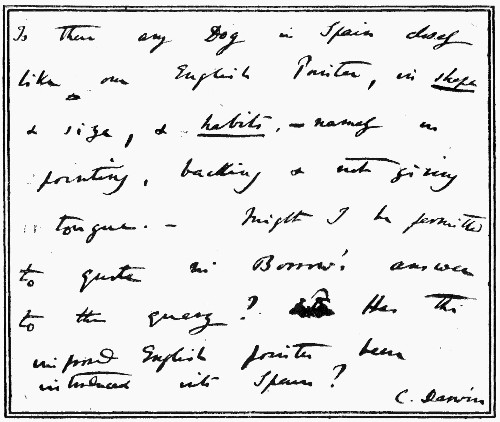 Is there any Dog in Spain closely
like our English Pointer, in shape
& size, & habits, – namely in
pointing, backing & not giving
tongue. – Might I be permitted
to quote Mr Borrow's answer
to the query? Has the
improved English pointer been
introduced into Spain?
C. Darwin